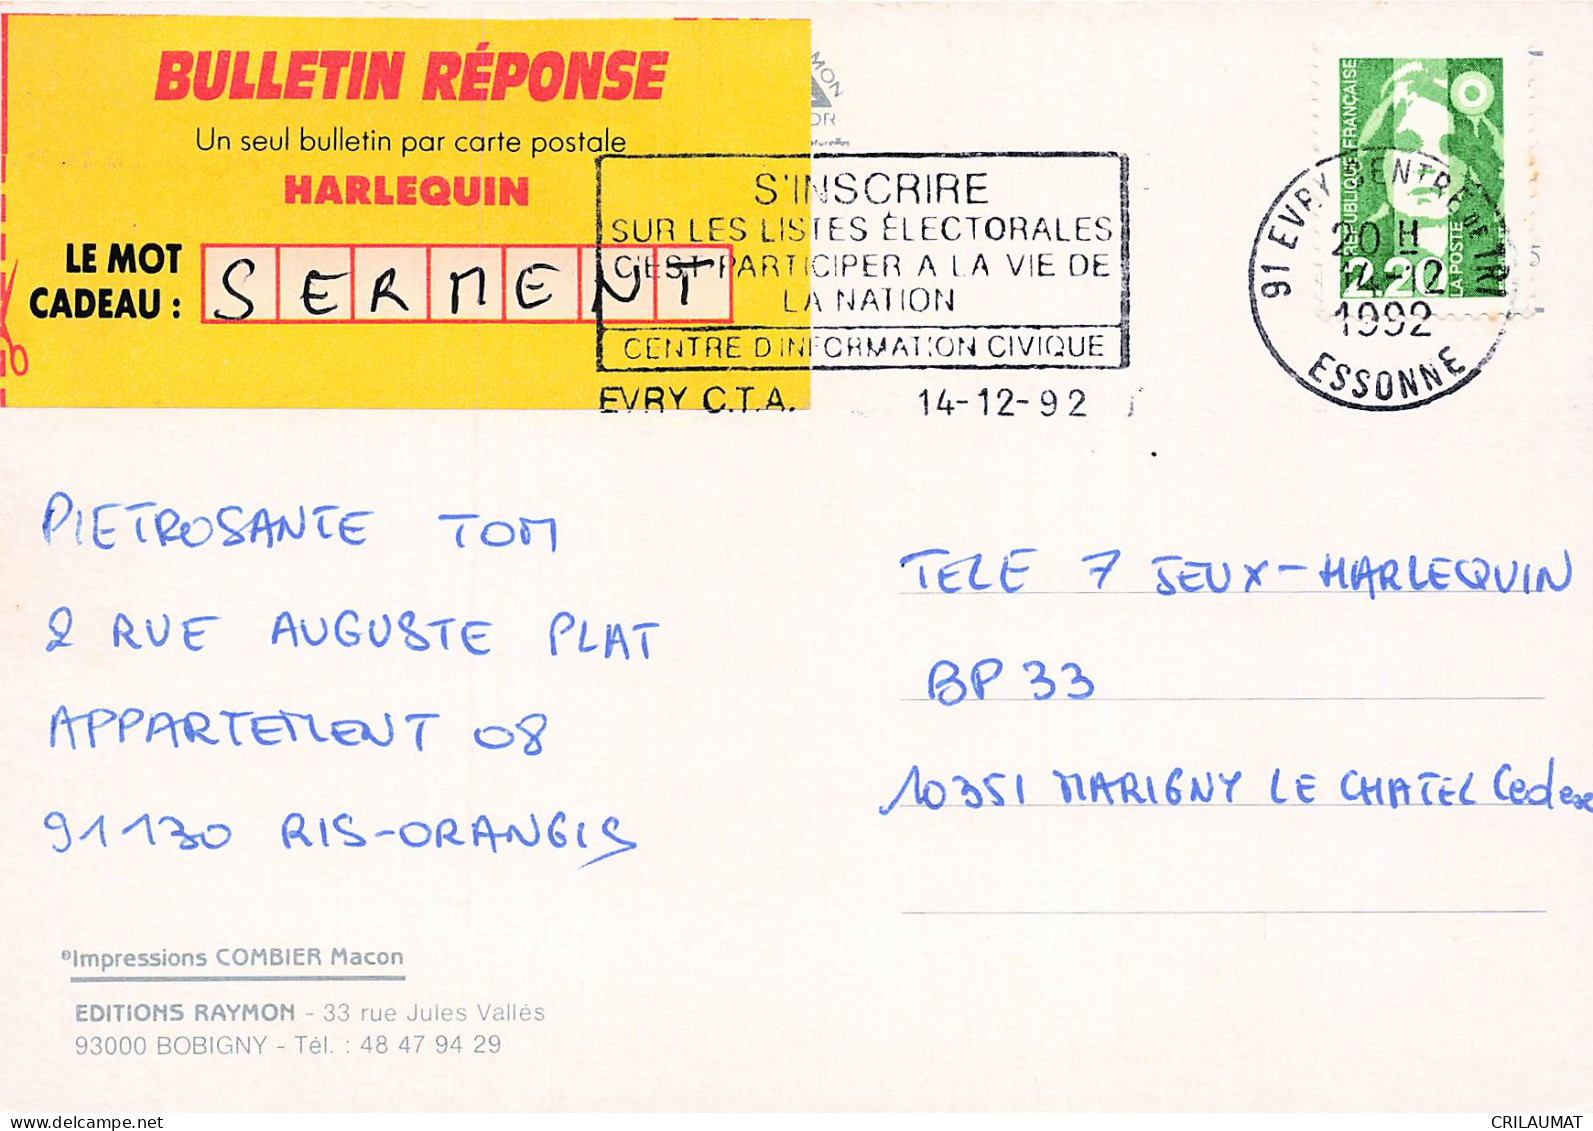 BULLETIN RÉPONSE
Un seul bulletin par carte postale
HARLEQUIN
LE MOT
CADEAU :
SERMENT
S'INSCRIRE
SUR LES LISTES ÉLECTORALES
C'EST PARTICIPER A LA VIE DE
LA NATION
CENTRE D'INFORMATION CIVIQUE
EVRY C.T.A. 14-12-92
RÉPUBLIQUE FRANÇAISE
2,20
LA POSTE
91 EVRY CENTRE DE TRI
20 H
14-12
1992
ESSONNE
PIETROSANTE TOM
2 RUE AUGUSTE PLAT
APPARTEMENT 08
91130 RIS-ORANGIS
TELE 7 JEUX-HARLEQUIN
BP 33
10351 MARIGNY LE CHATEL Cedex
Impressions COMBIER Macon
EDITIONS RAYMON - 33 rue Jules Vallés
93000 BOBIGNY - Tél. : 48 47 94 29
CRILAUMAT